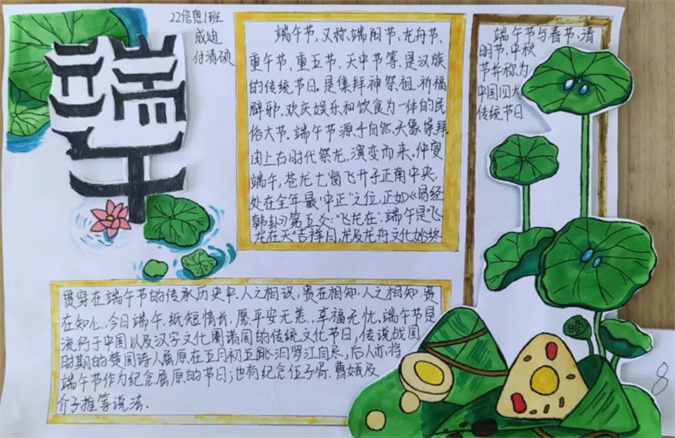 端午
22信息1班
成迪
付清硕
端午节，又称端阳节，龙舟节，
重午节，重五节，天中节等，是汉族
的传统节日。是集拜神祭祖，祈福
辟邪，欢庆娱乐和饮食为一体的民
俗大节，端午节源于自然天象崇拜，
由上古时代祭龙，演变而来，仲夏
端午，苍龙七宿飞升于正南中央，
处在全年最"中正"之位，正如《易经
韩卦》第五爻："飞龙在，端午是"飞
龙在天"吉祥日，龙及龙舟文化始终
贯穿在端午节的传承历史中，人之相识，贵在相知，人之相知，贵
在知心，今日端午，纸短情长，愿平安无恙，幸福无忧，端午节是
流行于中国以及汉字文化圈诸国的传统文化节日，传说战国
时期的楚国诗人屈原在五月初五跳汨罗江自尽，后人亦将
端午节作为纪念屈原的节日；也有纪念伍子胥，曹娥及
介子推等说法.
端午节与春节，清
明节，中秋
节并称为
中国四大
传统节日
8